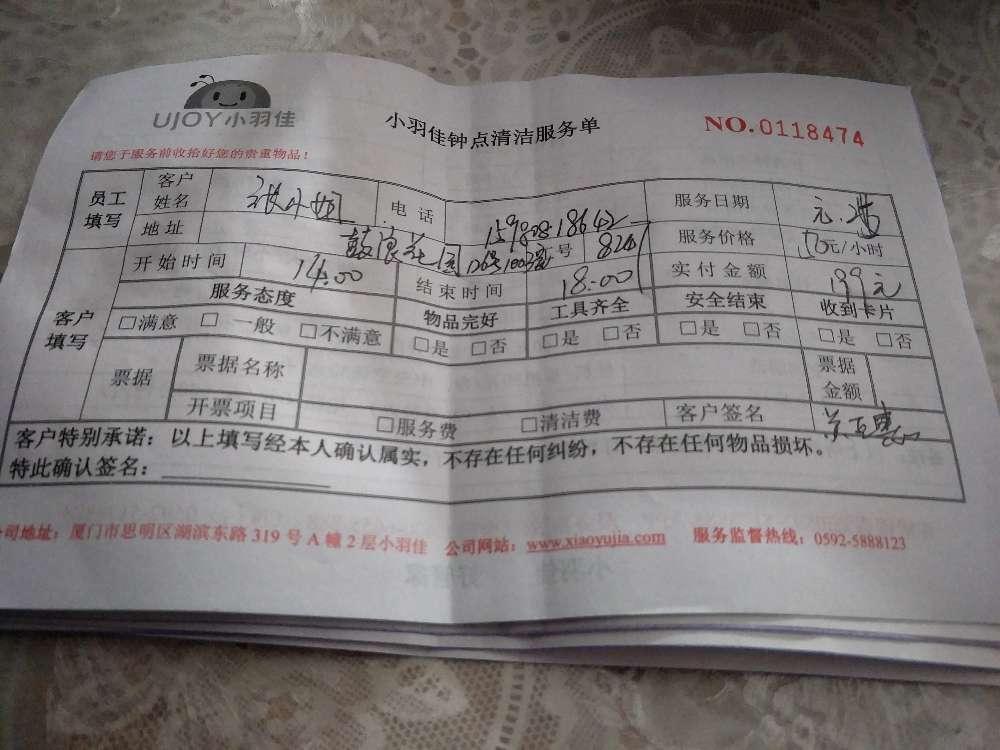 UJOY小羽佳
小羽佳钟点清洁服务单
NO.0118474
请您于服务前收拾好您的贵重物品！
员工填写 客户姓名 张小姐 电话 服务日期
地址 服务价格 元/小时
开始时间 14:00 结束时间 18:00 实付金额 199元
客户填写 服务态度 物品完好 工具齐全 安全结束 收到卡片
□满意 □一般 □不满意 □是 □否 □是 □否 □是 □否 □是 □否
票据 票据名称 票据金额
开票项目 □服务费 □清洁费 客户签名
客户特别承诺：以上填写经本人确认属实，不存在任何纠纷，不存在任何物品损坏。
特此确认签名：
司地址：厦门市思明区湖滨东路 319 号 A 幢 2 层小羽佳 公司网站：www.xiaoyujia.com 服务监督热线：0592-5888123